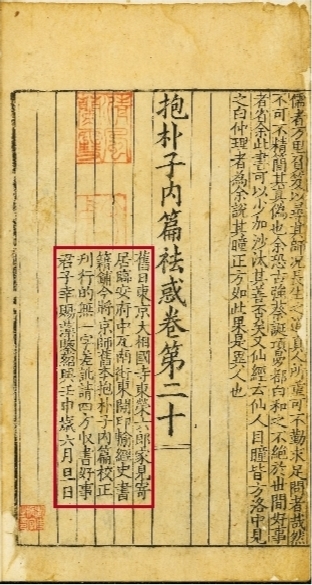 儒者万里負笈以尋其師況長生之道真人所重可不勤求足問者哉然
不可不精簡其真偽也余恐古強蔡誕項曼都白和之不絕於世間好事
者省余此書可以少加沙汰其善否矣又仙經云仙人目瞳皆方洛中見
之白仲理者為余說其瞳正方如此果是異人也
抱朴子內篇袪惑卷第二十
舊日東京大相國寺東榮六郎家見寄
居臨安府中瓦南街東開印輸經史書
籍鋪今將京師舊本抱朴子內篇校正
刊行的無一字差訛請四方收書好事
君子幸賜藻鑒紹興壬申歲六月旦日